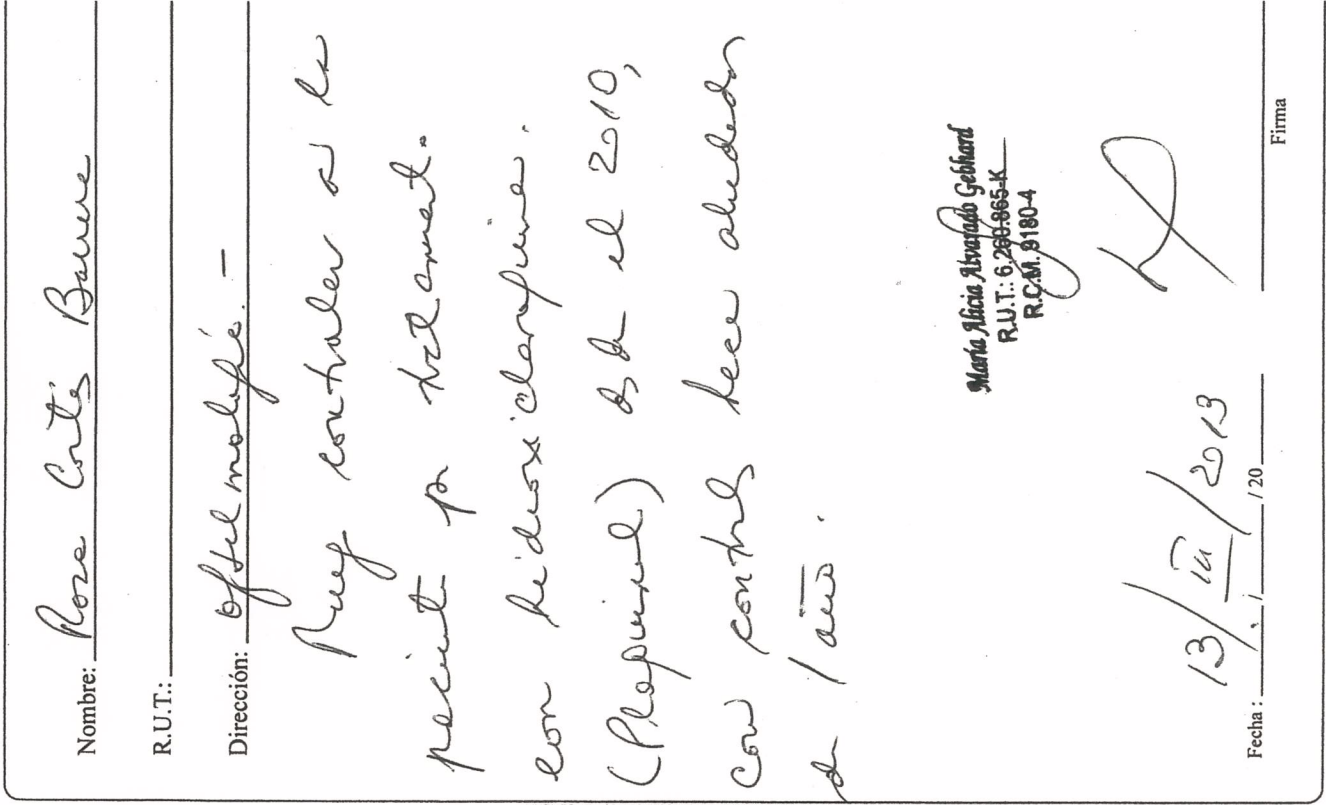 Nombre: Rosa Cortés
R.U.T.:
Dirección: Oftalmología. —
Ruego controlar a la
paciente p tratamient.
con hidroxicloroquina.
(Plaquinol) desde el 2010,
con control hace alrededor
de 1 año.
María Alicia Alvarado Gebhard
R.U.T.: 6.260.865-K
R.C.M. 9180-4
Fecha : 13 / III / 2013
Firma